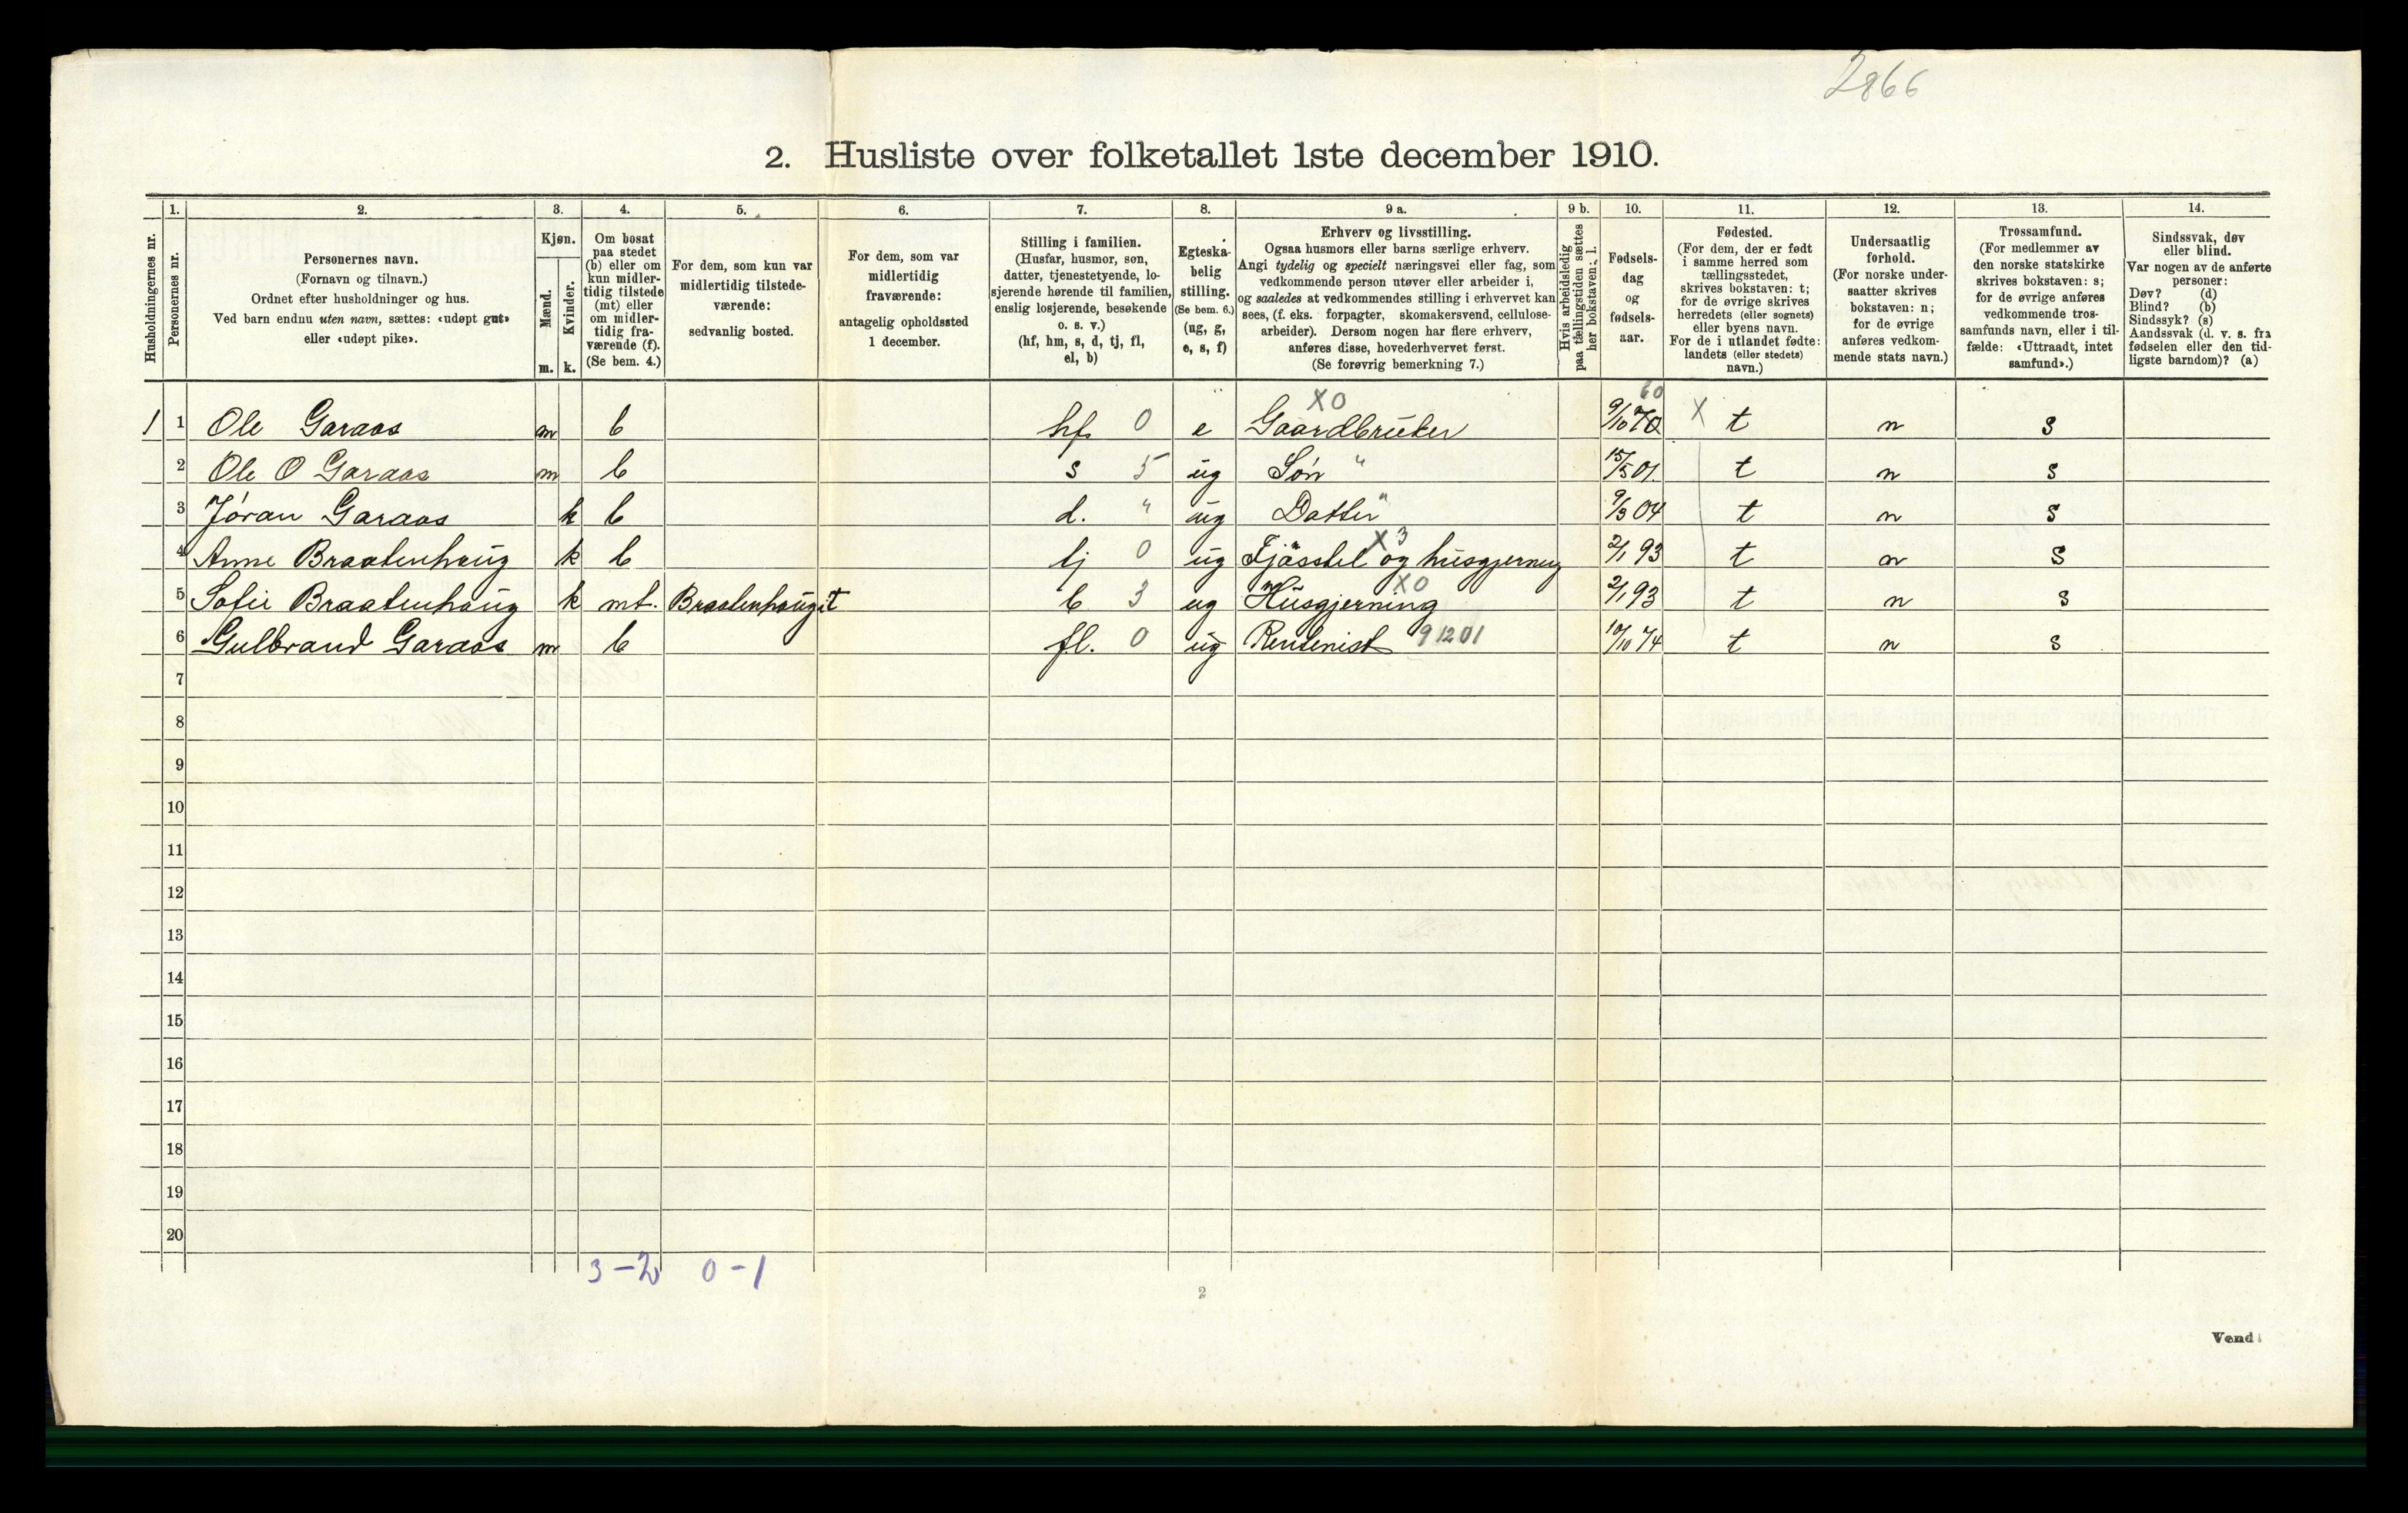 2866
2. Husliste over folketallet 1ste december 1910.
Husholdningernes nr.
1.
Personernes nr.
2.
Personernes navn.
(Fornavn og tilnavn.)
Ordnet efter husholdninger og hus.
Ved barn endnu uten navn, sættes: «udøpt gut»
eller «udøpt pike».
3.
Kjøn.
Mænd.
Kvinder.
m. k.
4.
Om bosat
paa stedet
(b) eller om
kun midler-
tidig tilstede
(mt) eller
om midler-
tidig fra-
værende (f).
(Se bem. 4.)
5.
For dem, som kun var
midlertidig tilstede-
værende:
sedvanlig bosted.
6.
For dem, som var
midlertidig
fraværende:
antagelig opholdssted
1 december.
7.
Stilling i familien.
(Husfar, husmor, søn,
datter, tjenestetyende, lo-
sjerende hørende til familien,
enslig losjerende, besøkende
o. s. v.)
(hf, hm, s, d, tj, fl,
el, b)
8.
Egteska-
belig
stilling.
(Se bem. 6.)
(ug, g,
e, s, f)
9 a.
Erhverv og livsstilling.
Ogsaa husmors eller barns særlige erhverv.
Angi tydelig og specielt næringsvei eller fag, som
vedkommende person utøver eller arbeider i,
og saaledes at vedkommendes stilling i erhvervet kan
sees, (f. eks. forpagter, skomakersvend, cellulose-
arbeider). Dersom nogen har flere erhverv,
anføres disse, hovederhvervet først.
(Se forøvrig bemerkning 7.)
9 b.
Hvis arbeidsledig
paa tællingstiden sættes
her bokstaven: l.
10.
Fødsels-
dag
og
fødsels-
aar.
11.
Fødested.
(For dem, der er født
i samme herred som
tællingsstedet,
skrives bokstaven: t;
for de øvrige skrives
herredets (eller sognets)
eller byens navn.
For de i utlandet fødte:
landets (eller stedets)
navn.)
12.
Undersaatlig
forhold.
(For norske under-
saatter skrives
bokstaven: n;
for de øvrige
anføres vedkom-
mende stats navn.)
13.
Trossamfund.
(For medlemmer av
den norske statskirke
skrives bokstaven: s;
for de øvrige anføres
vedkommende tros-
samfunds navn, eller i til-
fælde: «Uttraadt, intet
samfund».)
14.
Sindssvak, døv
eller blind.
Var nogen av de anførte
personer:
Døv? (d)
Blind? (b)
Sindssyk? (s)
Aandssvak (d. v. s. fra
fødselen eller den tid-
ligste barndom)? (a)
X0 60
1 1 Ole Garaas m b hf 0 e Gaardbruker 9/10 70 X t n s
2 Ole O Garaas m b s 5 ug Søn " 15/5 01. t n s
3 Jøran Garaas k b d. " ug Datter " 9/3 04 t n s
X 3
4 Anne Braatenhaug k b tj 0 ug Fjøsstel og husgjerning 2/1 93 t n s
X0
5 Sofie Braatenhaug k mt. Braatenhaug t b 3 ug Husgjerning 2/1 93 t n s
6 Gulbrand Garaas m b fl. 0 ug Rentenist 9 12 01 10/10 74 t n s
7
8
9
10
11
12
13
14
15
16
17
18
19
20
3 – 2 0 – 1
2
Vend!